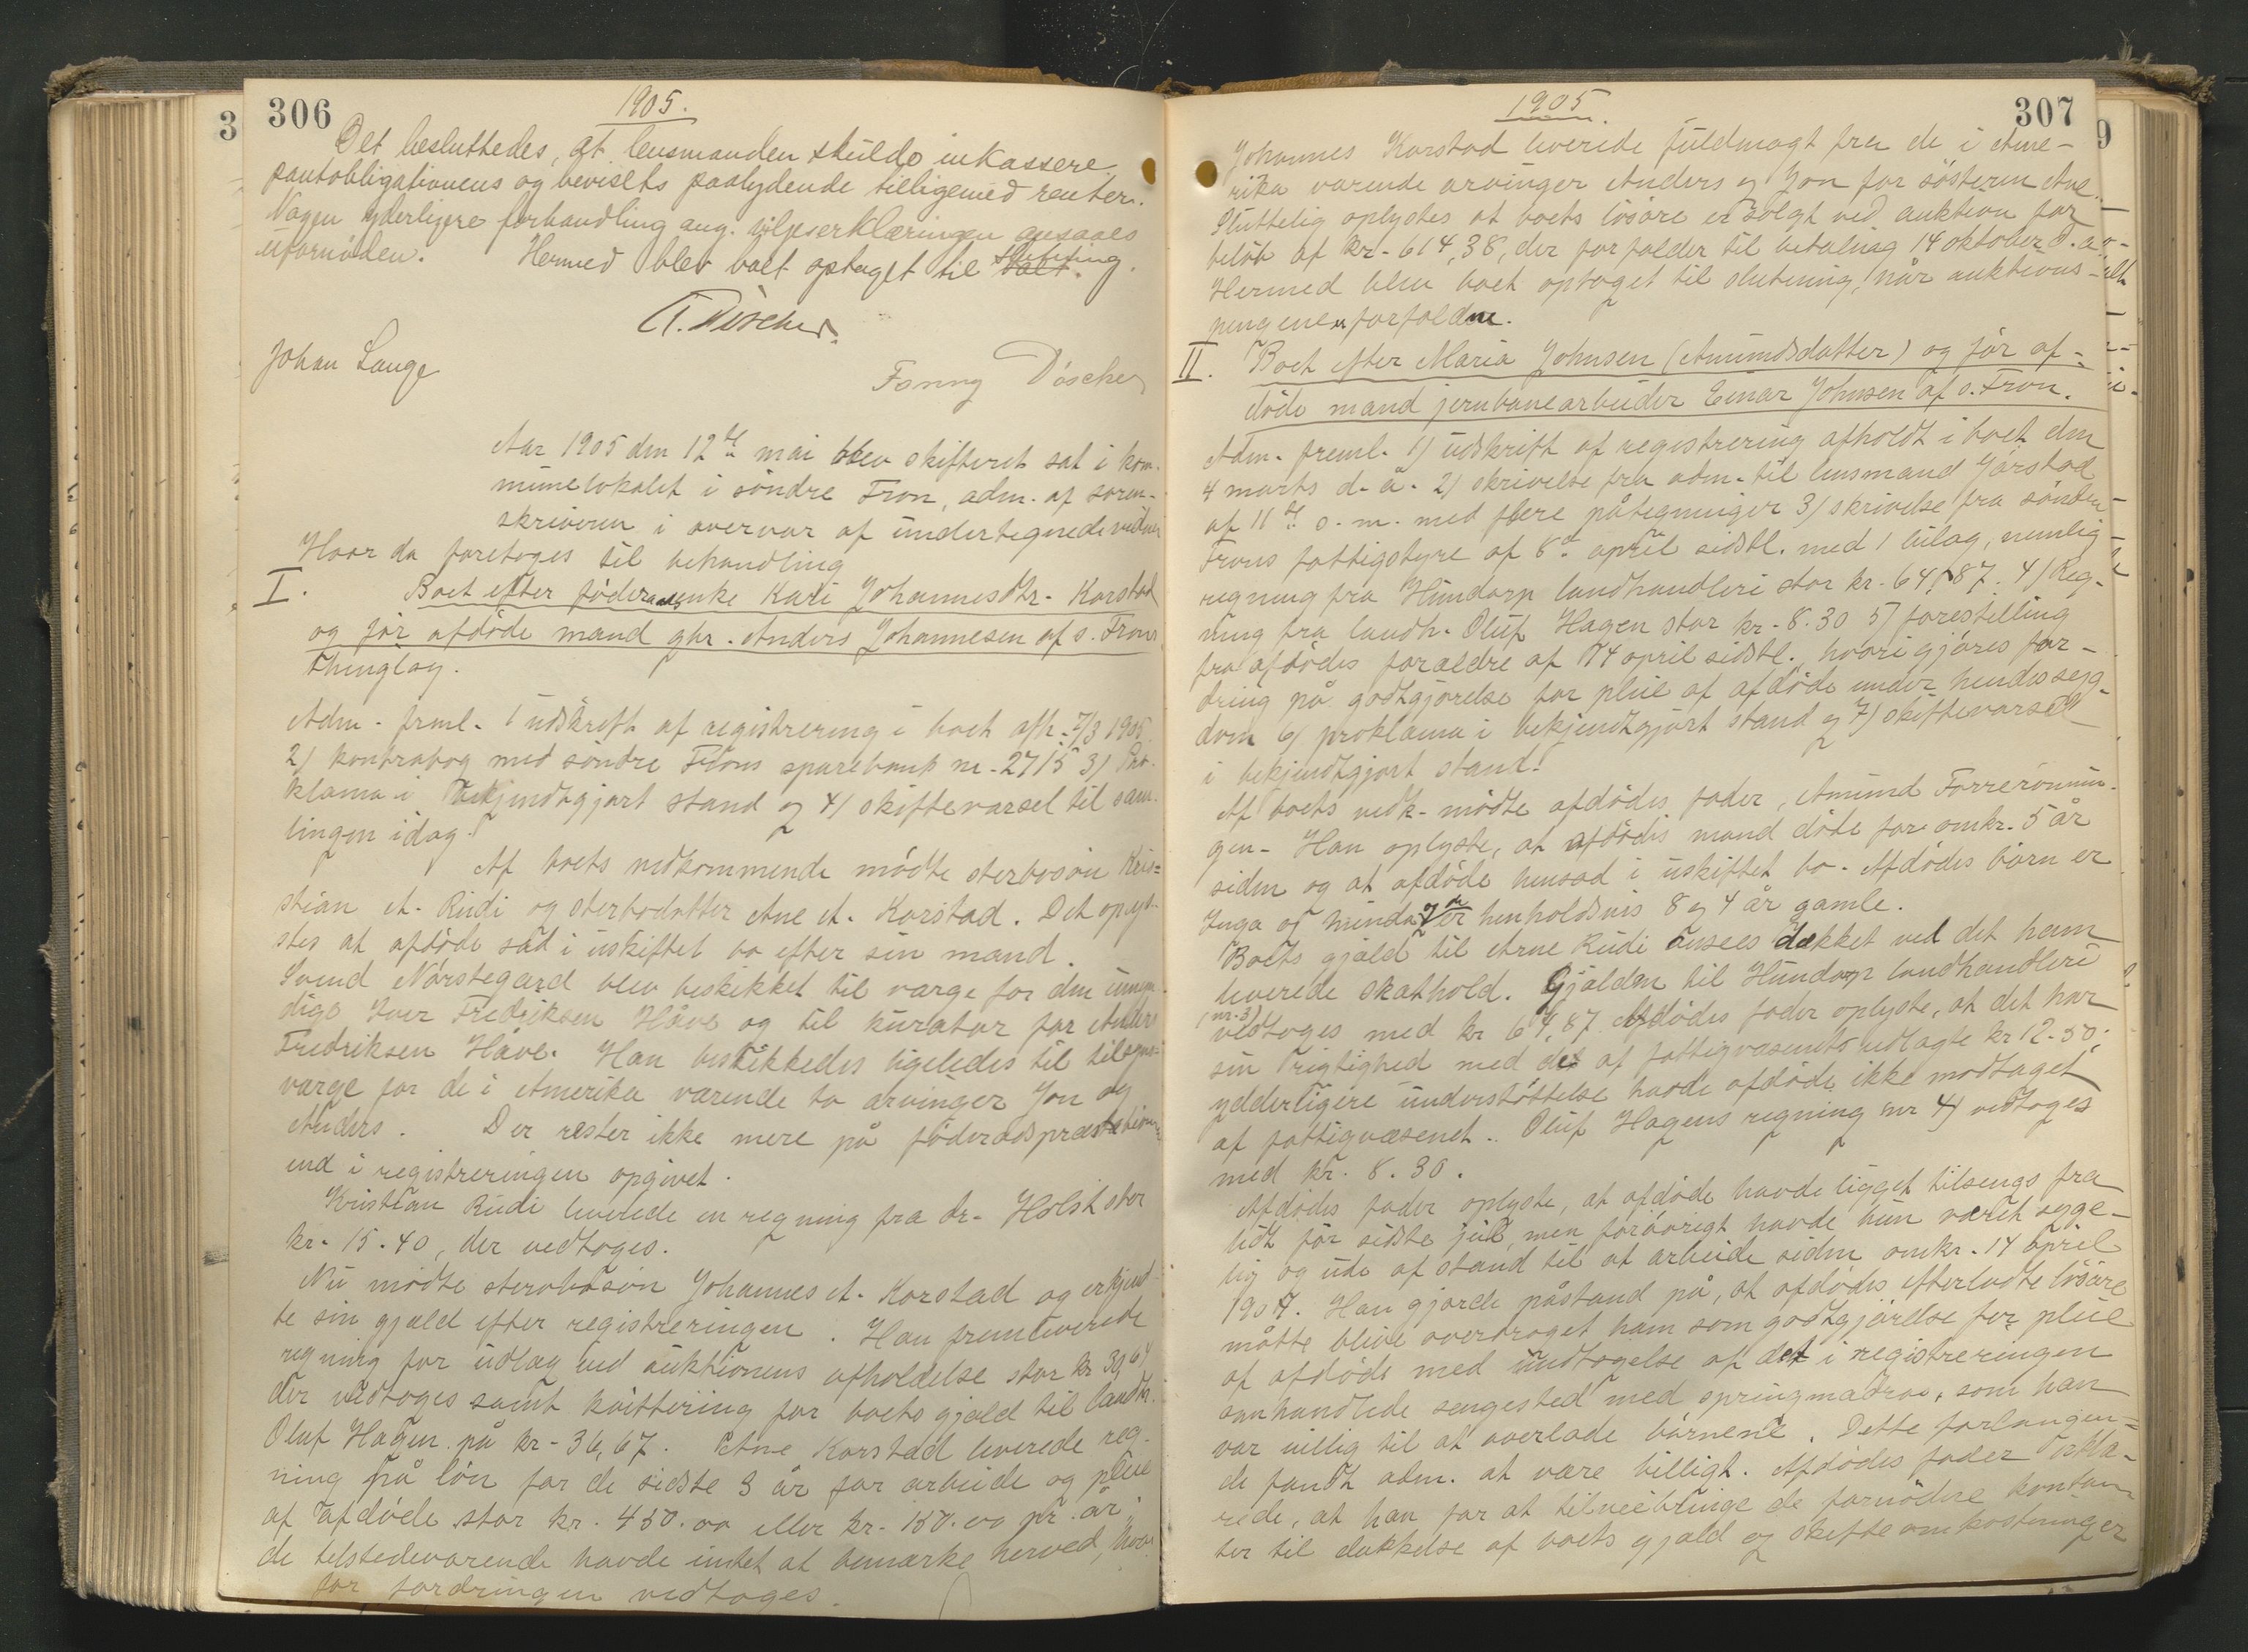 306
1905.
Det besluttedes, at lensmanden skulde inkassere
pantobligationens og bevisets paalydende tilligemed renter.
Nogen yderligere forhandling ang. viljeserklæringen ansaaes
ufornøden. Hermed blev boet optaget til slutning.
Johan Lange
Fanny Döscher
Aar 1905 den 12te mai blev skifteret sat i kom-
munelokalet i söndre Fron, adm. af soren-
skriveren i overvær af undertegnede vidner
Hvor da foretoges til behandling
I. Boet efter föderaadsenke Kari Johannesdtr. Korstad
og för afdöde mand gbr. Anders Johannesen af s. Frons
thinglag.
Adm. frml. 1 udskrift af registrering i boet afh. 7/3 1905
2/ kontrabog med söndre Frons sparebank nr. 2715 3/ Pro-
klama i bekjendtgjort stand og 4/ skiftevarsel til sam-
lingen idag.
Af boets vedkommende mödte sterbosön Kris-
stian A. Rudi og sterbodatter Ane A. Korstad. Det oplys-
stes at afdöde sad i uskiftet bo efter sin mand.
Svend Nörstegard blev beskikket til værge for den umyn-
dige Iver Fredriksen Håve og til kurator for Anders
Fredriksen Håve. Han beskikkedes ligeledes til tilsyns-
værge for de i Amerika værende to arvinger Jon og
Anders. Der rester ikke mere på föderadspræstationen
end i registreringen opgivet.
Kristian Rudi leverede en regning fra dr. Holst stor
kr. 15.40, der vedtoges.
Nu mödte sterbosön Johannes A. Korstad og erkjend-
te sin gjæld efter registreringen. Han fremleverede
regning for udlæg ved auktionens afholdelse stor kr 30,64
der vedtoges samt kvittering for boets gjæld til landh.
Oluf Hagen på kr. 36,67. Ane Korstad leverede reg-
ning på lön for de sidste 3 år for arbeide og pleie
af afdöde stor kr. 450.00 eller kr. 150.00 pr. år;
de tilstedeværende havde intet at bemærke herved, hvor-
for fordringen vedtoges.
1905.
307
Johannes Korstad leverede fuldmagt fra de i Ame-
rika værende arvinger Anders og Jon for sösteren Ane.
Sluttelig oplystes at boets lösöre er solgt ved auktion for
belöb af kr. 614,38, der forfalder til betaling 14 oktober d. a.
Hermed blev boet optaget til slutning, når auktions-
pengene er forfaldne.
II. Boet efter Maria Johnsen (Amundsdatter) og för af-
döde mand jernbanearbeider Einar Johnsen af s. Fron.
Adm. freml. 1/ udskrift af registrering afholdt i boet den
4 marts d. å. 2/ skrivelse fra adm. til lensmand Görstad
af 11te s. m. med flere påtegninger 3/ skrivelse fra söndre
Frons fattigstyre af 8de april sidstl. med 1 bilag, nemlig
regning fra Hundorp landhandleri stor kr. 64,87. 4/ Reg-
ning fra landh. Oluf Hagen stor kr. 8.30 5/ forestilling
fra afdödes forældre af 14 april sidstl. hvori gjöres for-
dring på godtgjörelse for pleie af afdöde under hendes syg-
dom 6/ proklama i bekjendtgjort stand og 7/ skiftevarsel
i bekjendtgjort stand.
Af boets vedk. mödte afdödes fader, Amund Forrerönnin-
gen. Han oplyste, at afdödes mand döde for omkr. 5 år
siden og at afdöde hensad i uskiftet bo. Afdödes börn er
Inga og Minda og er henholdsvis 8 og 4 år gamle.
Boets gjæld til Arne Rudi ansees dækket ved det ham
leverede skathold. Gjælden til Hundorp landhandleri
(nr. 3)
vedtoges med kr 64,87. Afdödes fader oplyste, at det har
sin rigtighed med det af fattigvæsenets udlagte kr 12.50;
ydderligere understöttelse havde afdöde ikke modtaget
af fattigvæsenet. Oluf Hagens regning nr 4) vedtoges
med kr. 8.30.
Afdödes fader oplyste, at afdöde havde ligget tilsengs fra
lidt för sidste jul, men forövrigt havde hun været syge-
lig og ude af stand til at arbeide siden omkr. 14 april
1904. Han gjorde påstand på, at afdödes efterladte lösöre
måtte blive overdraget ham som godtgjörelse for pleie
af afdöde med undtagelse af det i registreringen
omhandlede sengested med springmadras, som han
var villig til at overlade börnene. Dette forlangen-
de fandt adm. at være billigt. Afdödes fader erklæ-
rede, at han for at tilveiebringe de fornödne kontan-
ter til dækkelse af boets gjæld og skifteomkostninger